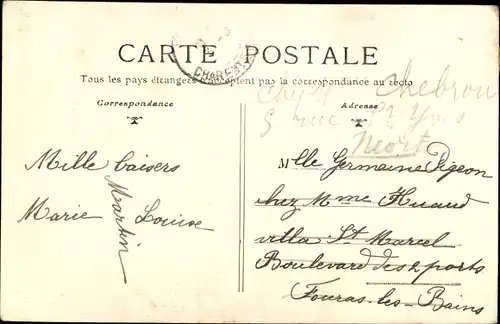 CARTE POSTALE
CHARENTE
Tous les pays étrangers n'acceptent pas la correspondance au recto
Correspondance
Adresse
Mille baisers
Marie Louise
Martin
Chebrou
5 rue St Yves
Niort
Mlle Germaine Pigeon
chez Mme Huaud
villa St Marcel
Boulevard des 2 ports
Fouras-les-Bains